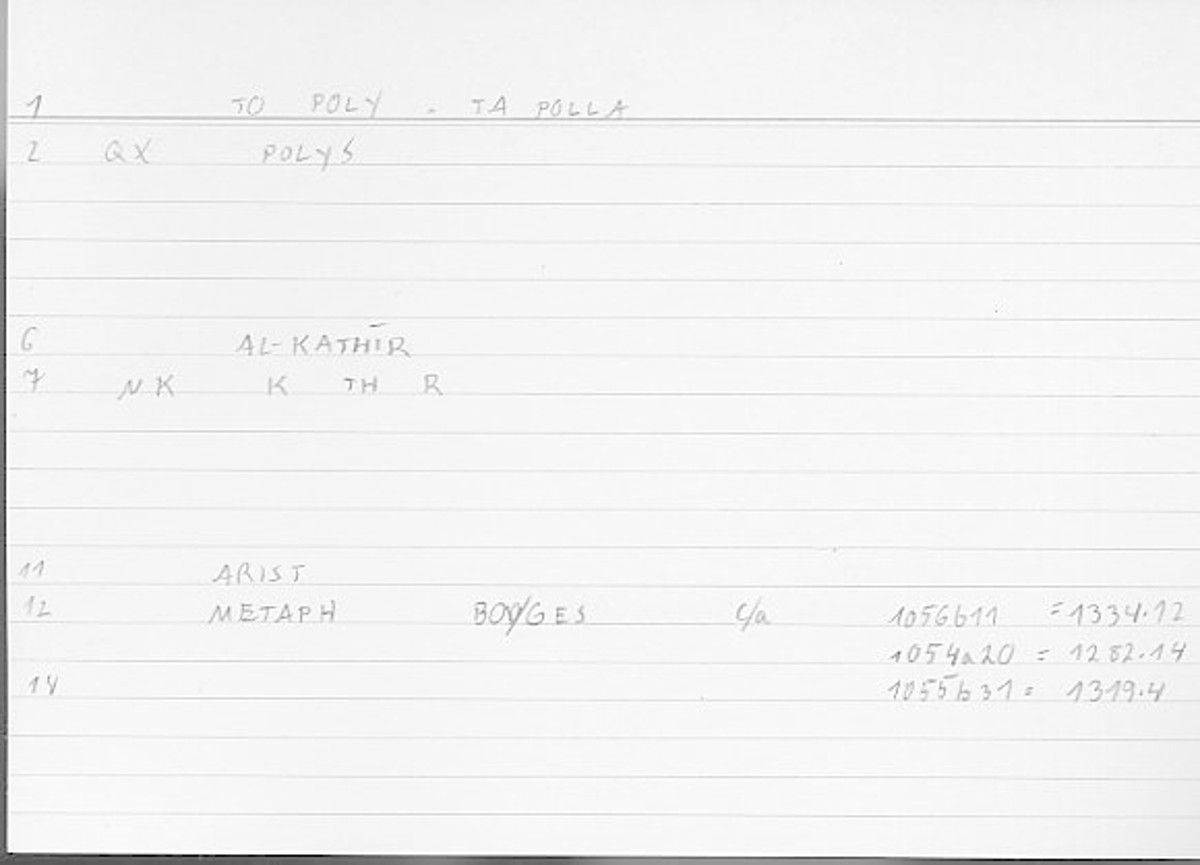 1 TO POLY - TA POLLA
2 QX POLYS
6 AL-KATHĪR
7 NK K TH R
11 ARIST
12 METAPH BOUYGES C/a 1056b11 = 1334.12
1054a20 = 1282.14
14 1055b31 = 1319.4